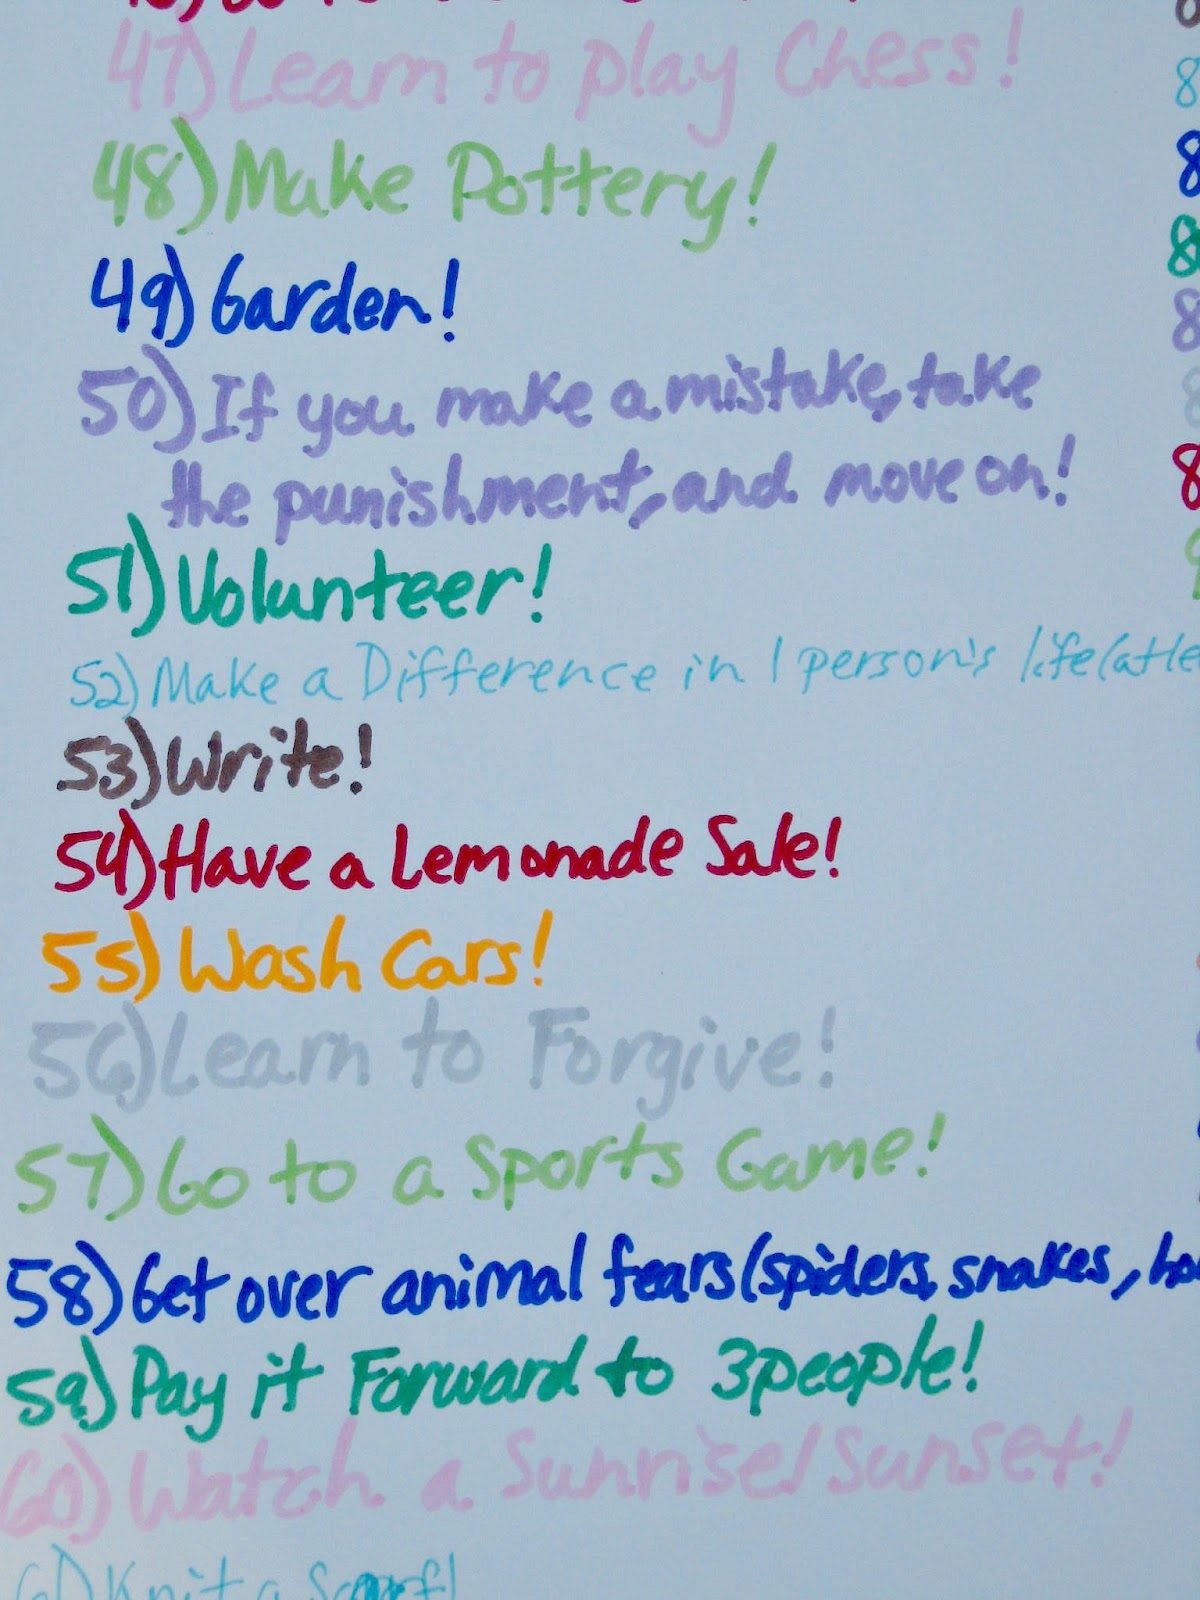 47) Learn to play Chess!
48) Make Pottery!
49) Garden!
50) If you make a mistake, take
the punishment, and move on!
51) Volunteer!
52) Make a Difference in 1 person's life (at le
53) Write!
54) Have a Lemonade Sale!
55) Wash Cars!
56) Learn to Forgive!
57) Go to a Sports Game!
58) Get over animal fears (spiders, snakes, ho
59) Pay it Forward to 3 people!
60) Watch a Sunrise/Sunset!
61) Knit a Scarf!